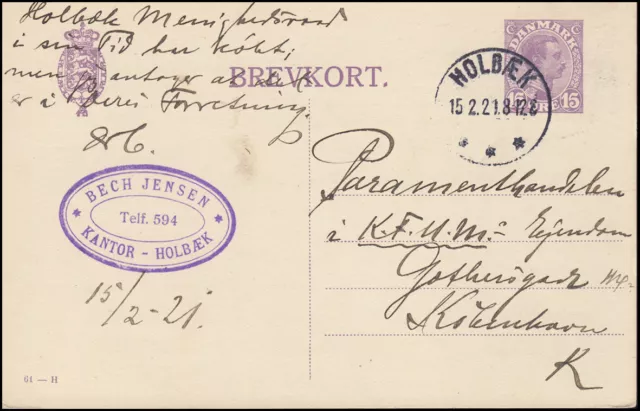 Holbæk Menighedsraad
i sin Tid har købt;
men jeg antager at det
er i Deres Forretning.
DANMARK
15 ØRE 15
BREVKORT.
HOLBÆK
15.2.21.8-12E
Paramenthandelen
i K.F.U.M.s Ejendom
Gothersgade
København
K
BECH JENSEN
Telf. 594
KANTOR - HOLBÆK
15/2-21.
61 — H